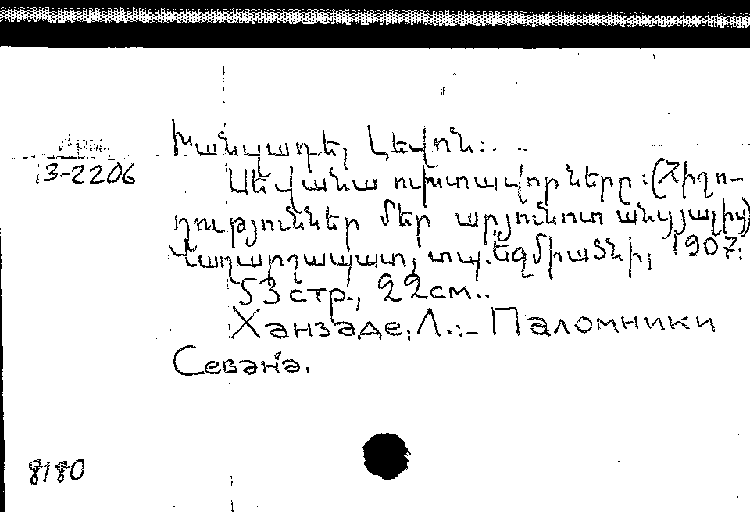 Арм.
13-2206
Խանզադե, Լեվոն:..
Սեվանա ուխտավորները: (Հիշո-
ղություններ մեր արյունոտ անցյալից)
Վաղարշապատ, տպ. Էջմիածնի, 1907:
53 стр., 22см..
Ханзаде, Л.:- Паломники
Севана.
8180